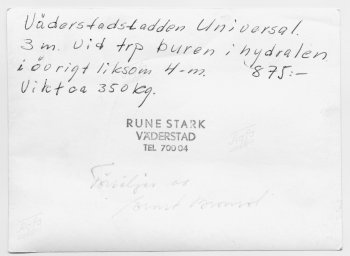 Väderstadstadden Universal.
3 m. Vid trp buren i hydralen
i övrigt liksom 4-m. 875:-
Viktca 350 kg.
RUNE STARK
VÄDERSTAD
TEL. 70004
Försäljes av